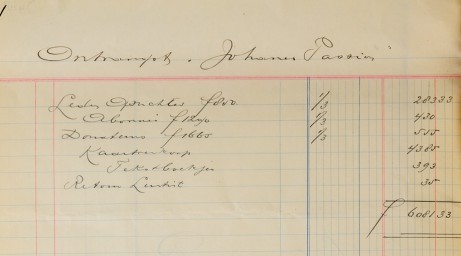 Ontvangst. Johannes Passion
Leden f850 1/3 283 33
Abonné f1290 1/3 430
Donateurs f1665 1/3 555
Kaartverkoop 4385
Tekstboekjes 393
Retour 35
f 6081 33